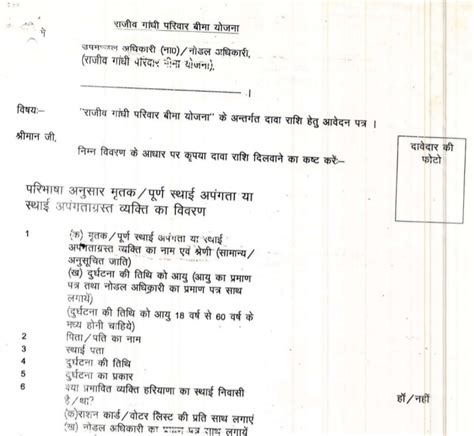 राजीव गांधी परिवार बीमा योजना
उपमण्डल अधिकारी (ना0)/नोडल अधिकारी,
(राजीव गांधी परिवार बीमा योजना),
विषयः– "राजीव गांधी परिवार बीमा योजना" के अन्तर्गत दावा राशि हेतु आवेदन पत्र ।
श्रीमान जी,
दावेदार की
फोटो
निम्न विवरण के आधार पर कृपया दावा राशि दिलवाने का कष्ट करेंः–
परिभाषा अनुसार मृतक/पूर्ण स्थाई अपंगता या
स्थाई अपंगताग्रस्त व्यक्ति का विवरण
1 (क) मृतक/पूर्ण स्थाई अपंगता या स्थाई
अपंगताग्रस्त व्यक्ति का नाम एवं श्रेणी (सामान्य/
अनुसूचित जाति)
(ख) दुर्घटना की तिथि को आयु (आयु का प्रमाण
पत्र तथा नोडल अधिकारी का प्रमाण पत्र साथ
लगायें)
(दुर्घटना की तिथि को आयु 18 वर्ष से 60 वर्ष के
मध्य होनी चाहिये)
2 पिता/पति का नाम
3 स्थाई पता
4 दुर्घटना की तिथि
5 दुर्घटना का प्रकार
6 क्या प्रभावित व्यक्ति हरियाणा का स्थाई निवासी हाँ/नहीं
है/था?
(क)राशन कार्ड/वोटर लिस्ट की प्रति साथ लगाएं
(ख) नोडल अधिकारी का प्रमाण पत्र साथ लगायें